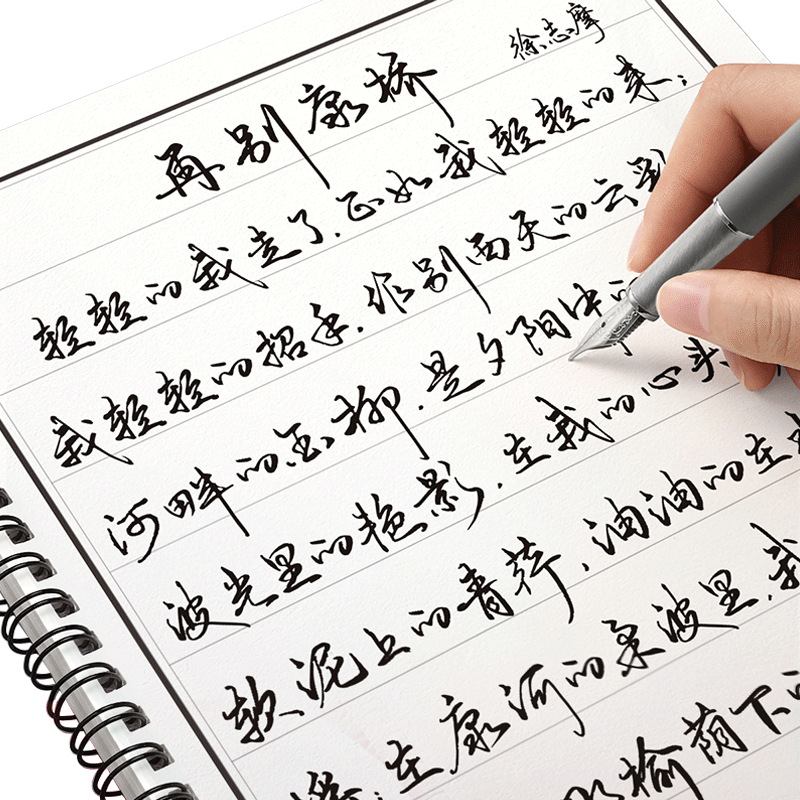 再别康桥
徐志摩
轻轻的我走了,正如我轻轻的来;
我轻轻的招手,作别西天的云
河畔的金柳,是夕阳中
波光里的艳影,在我的心头
软泥上的青荇,油油的在
在康河的柔波里,我
榆荫下